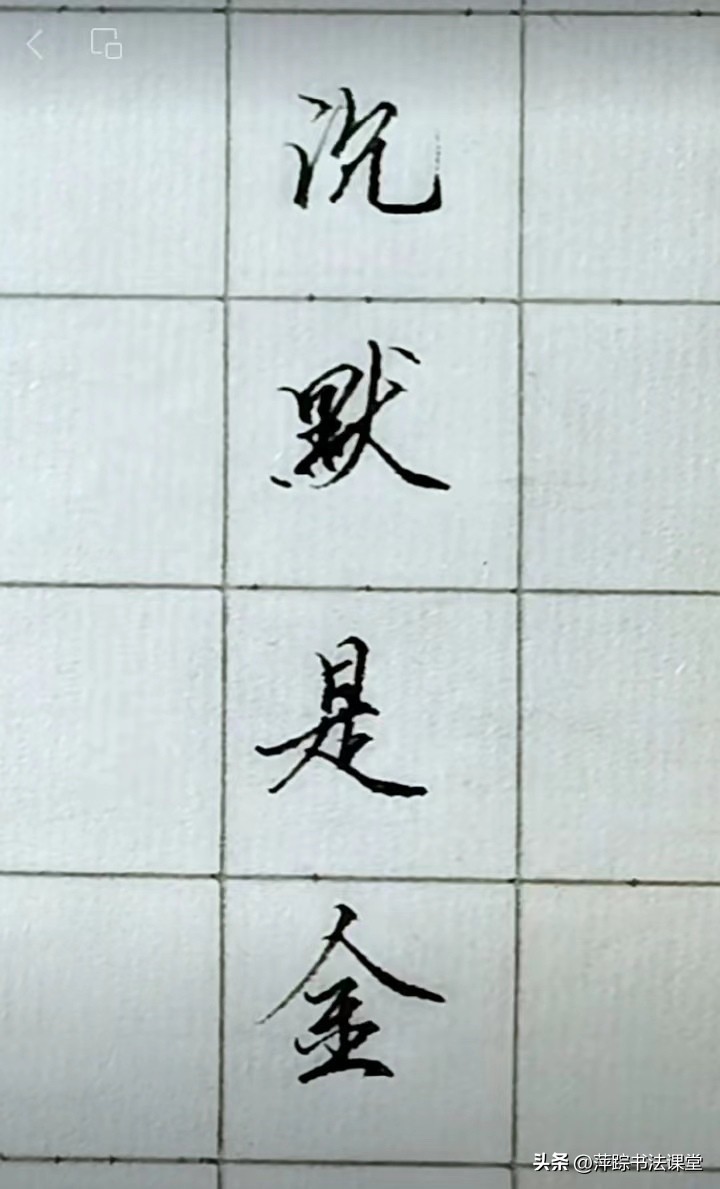 沉
默
是
金
头条 @萍踪书法课堂